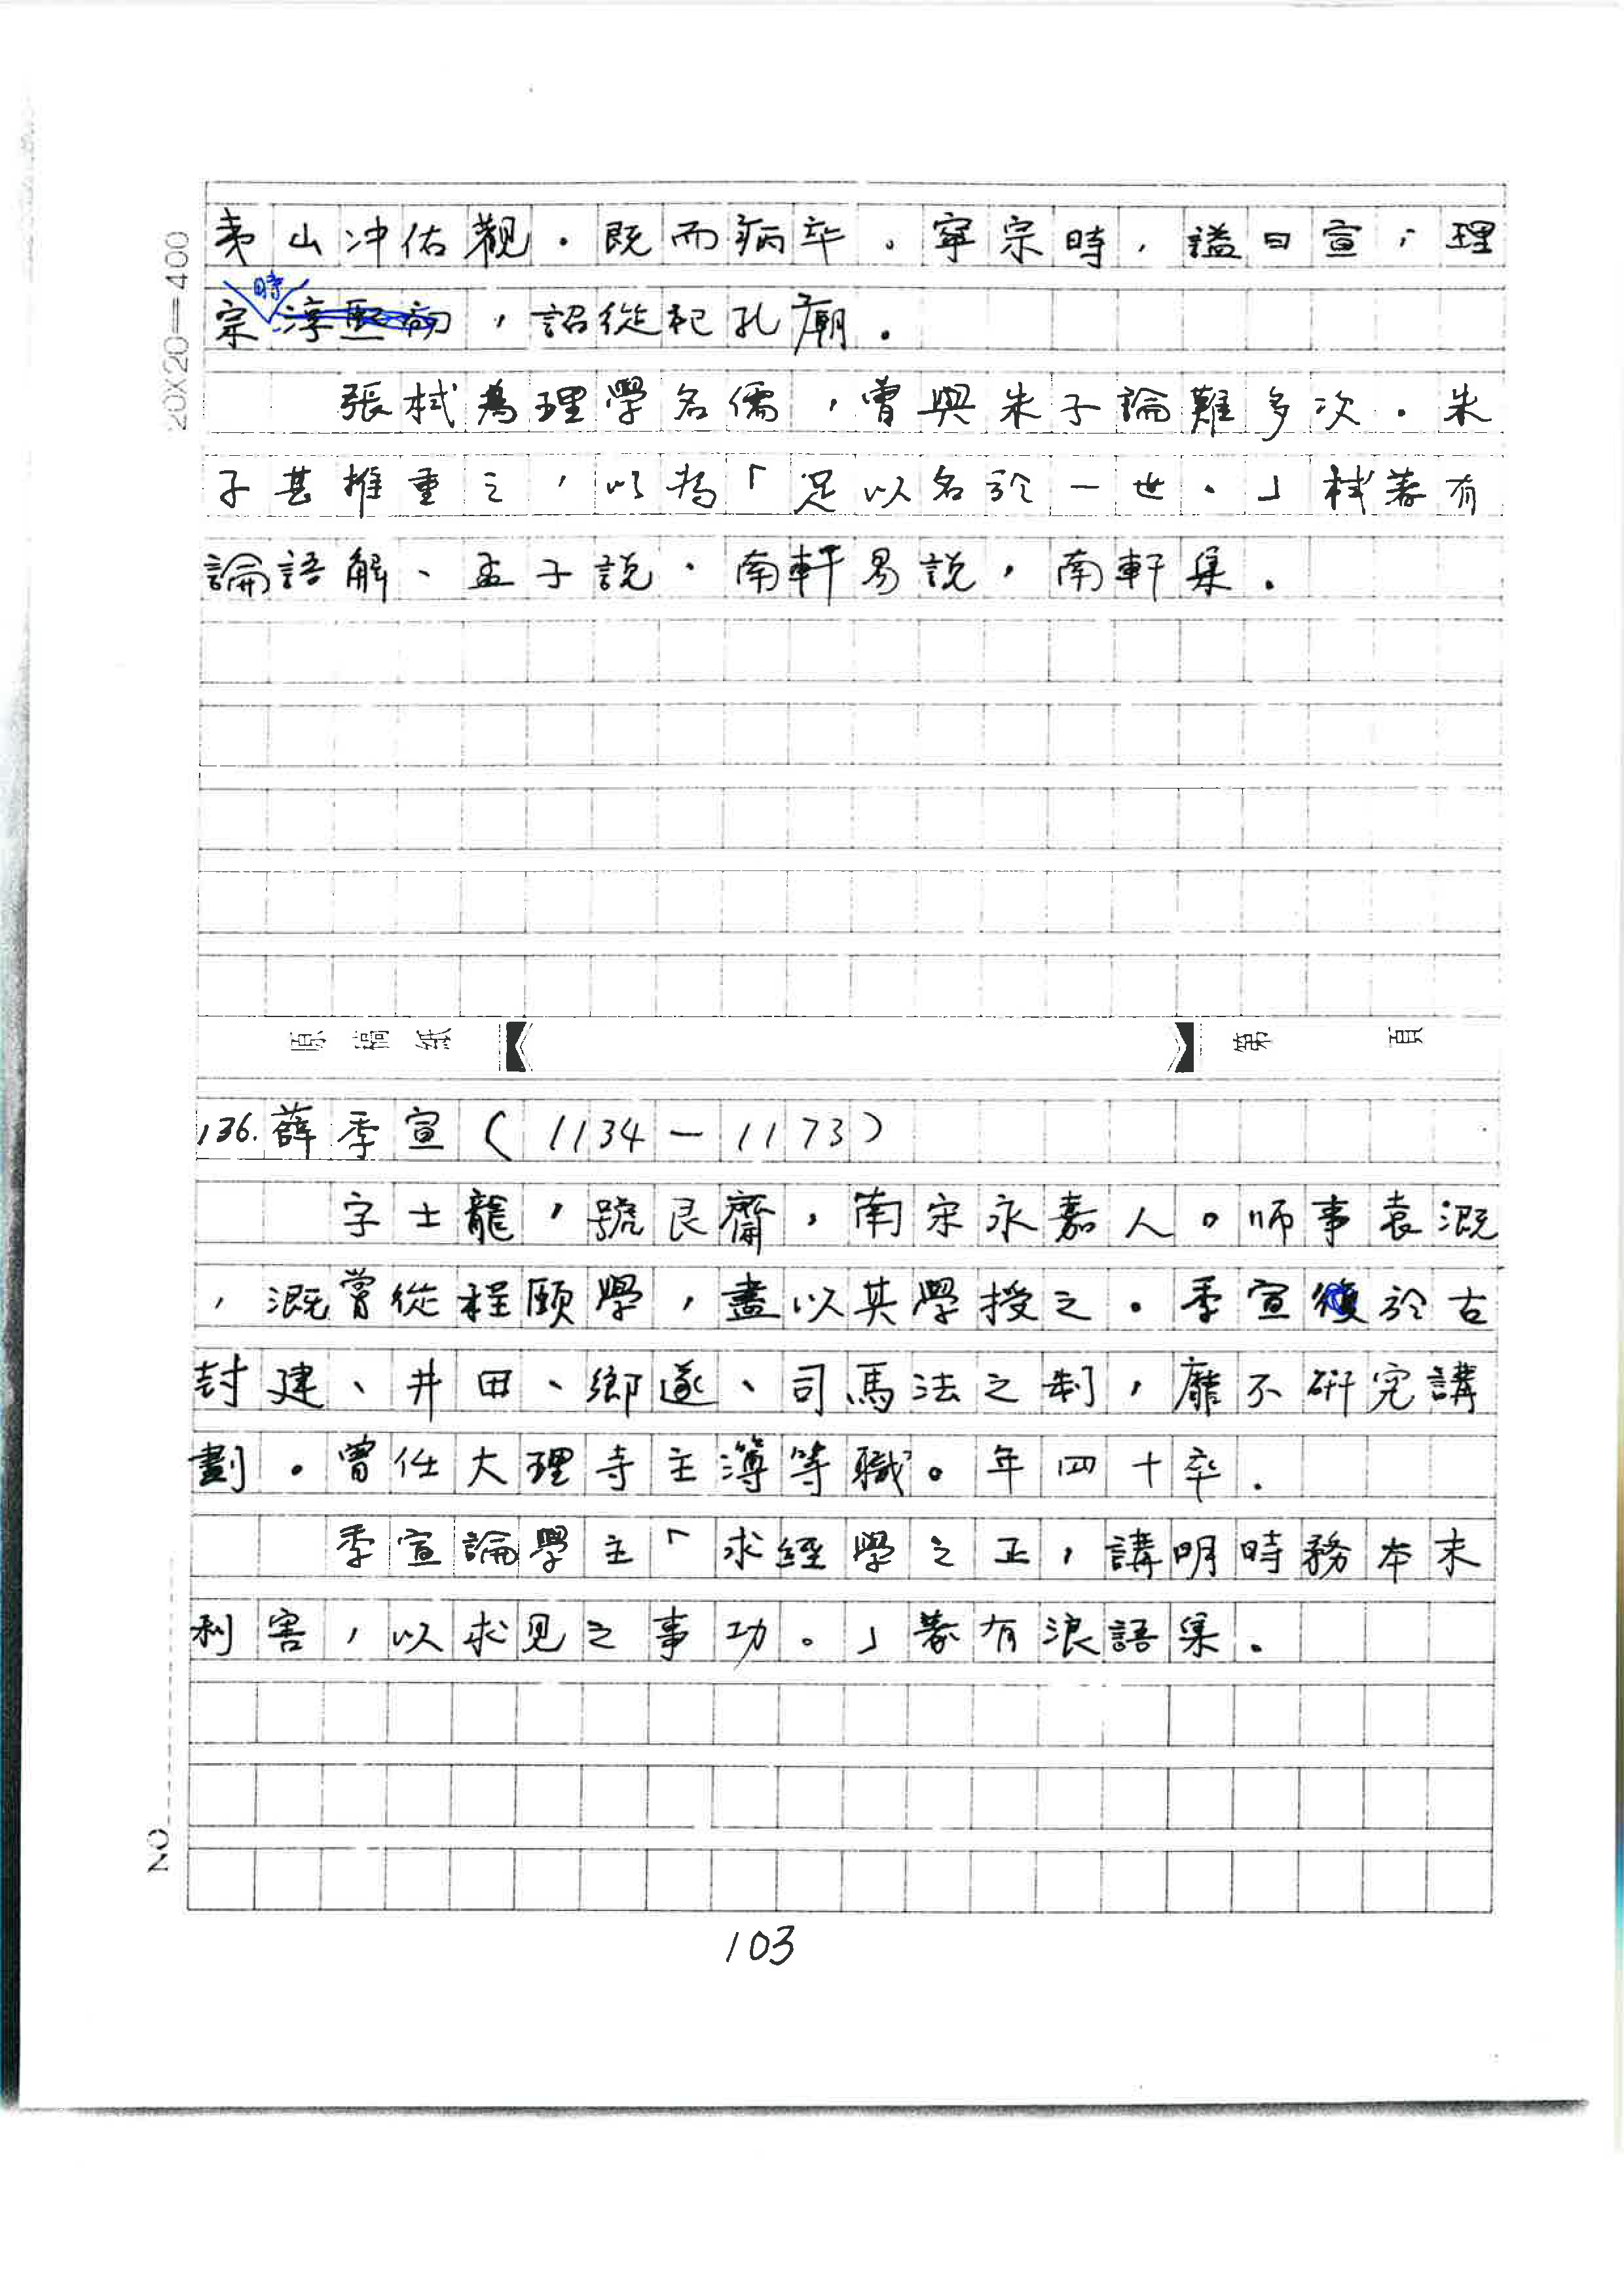 20X20=400
夷山冲佑觀。既而病卒。寧宗時，謚曰宣；理
宗時，詔從祀孔廟。
張栻為理學名儒，曾與朱子論難多次。朱
子甚推重之，以為「足以名於一世。」栻著有
論語解、孟子說、南軒易說，南軒集。
原稿紙 第 頁
136.薛季宣(1134－1173)
字士龍，號艮齋，南宋永嘉人。師事袁溉
，溉嘗從程頤學，盡以其學授之。季宣於古
封建、井田、鄉遂、司馬法之制，靡不研究講
劃。曾任大理寺主簿等職。年四十卒。
季宣論學主「求經學之正，講明時務本末
利害，以求見之事功。」著有浪語集。
NO
103